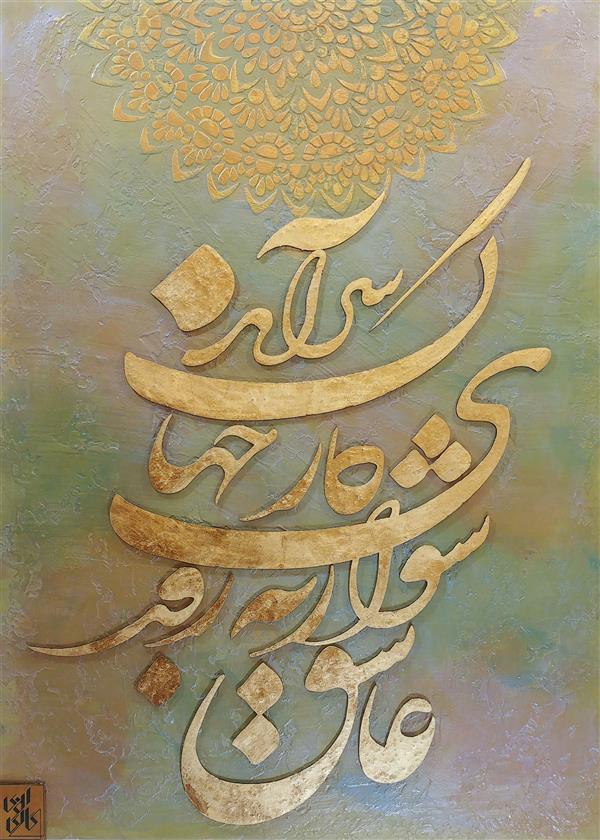 عاشق
شو ار نه روزی
کار جهان
سر آید